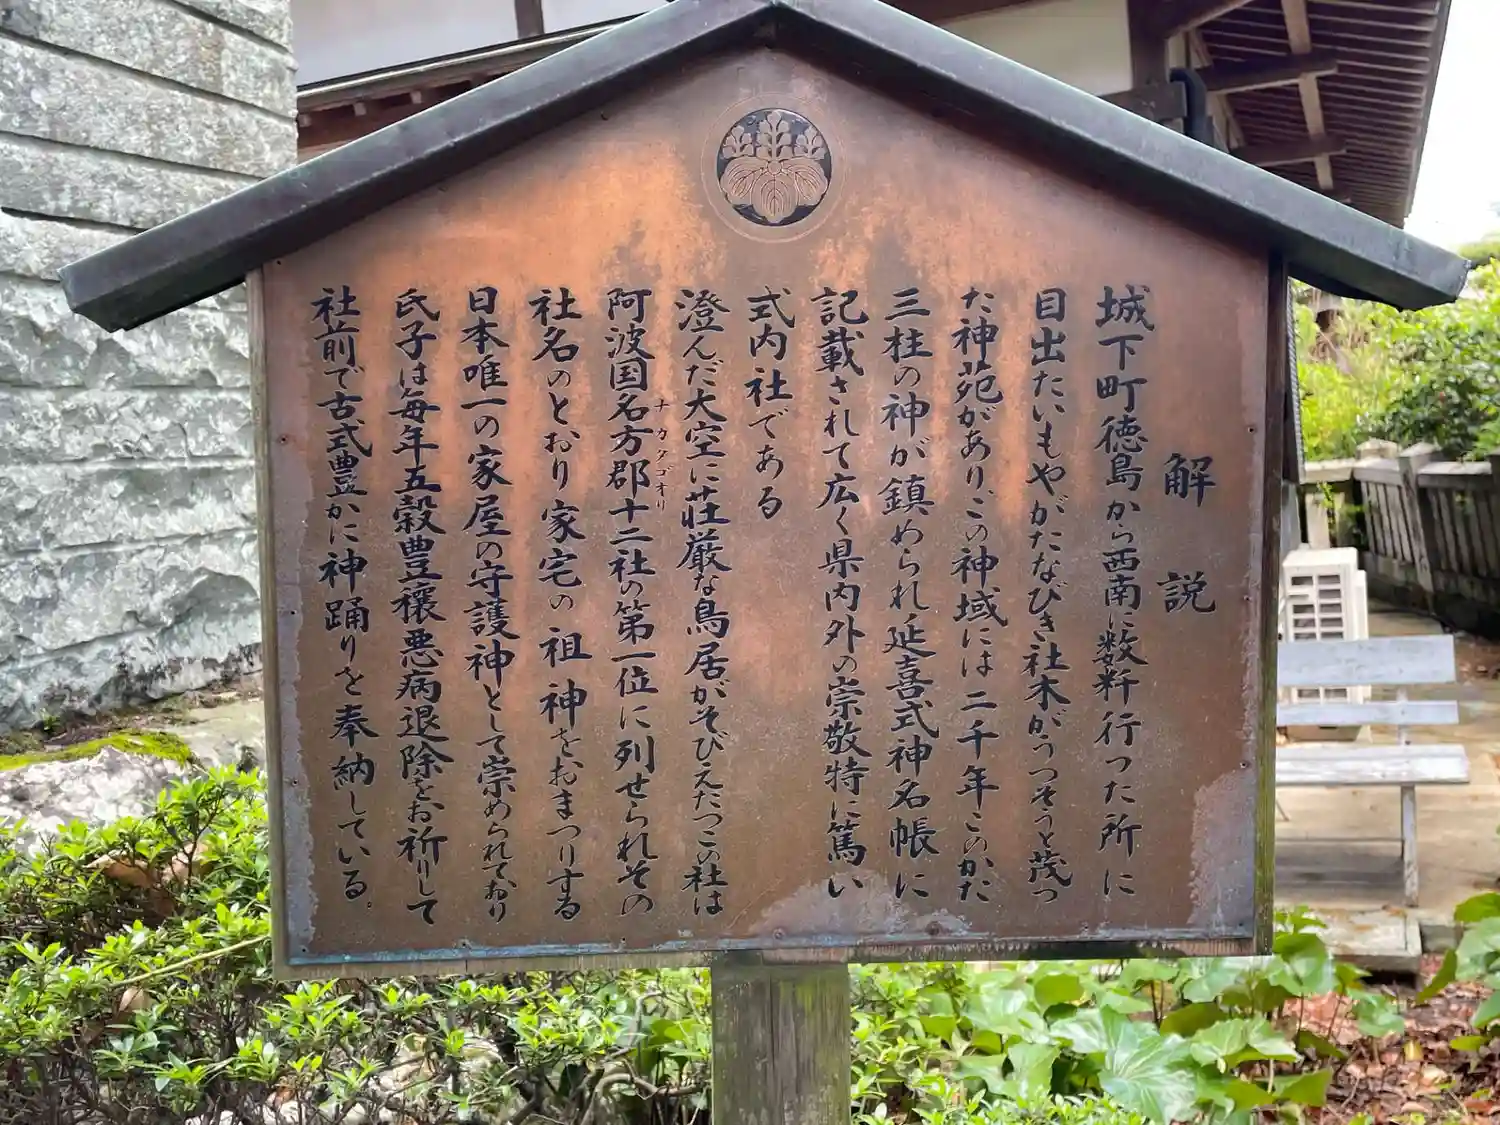 解説
城下町徳島から西南に数粁行った所に
目出たいもやがたなびき社木がうつそうと茂つ
た神苑があり、この神域には二千年このかた
三柱の神が鎮められ延喜式神名帳に
記載されて広く県内外の崇敬特に篤い
式内社である
澄んだ大空に荘厳な鳥居がそびえたつこの社は
阿波国名方郡十二社の第一位に列せられその
ナカタゴオリ
社名のとおり家宅の祖神をおまつりする
日本唯一の家屋の守護神として崇められており
氏子は毎年五穀豊穣悪病退除をお祈りして
社前で古式豊かに神踊りを奉納している。